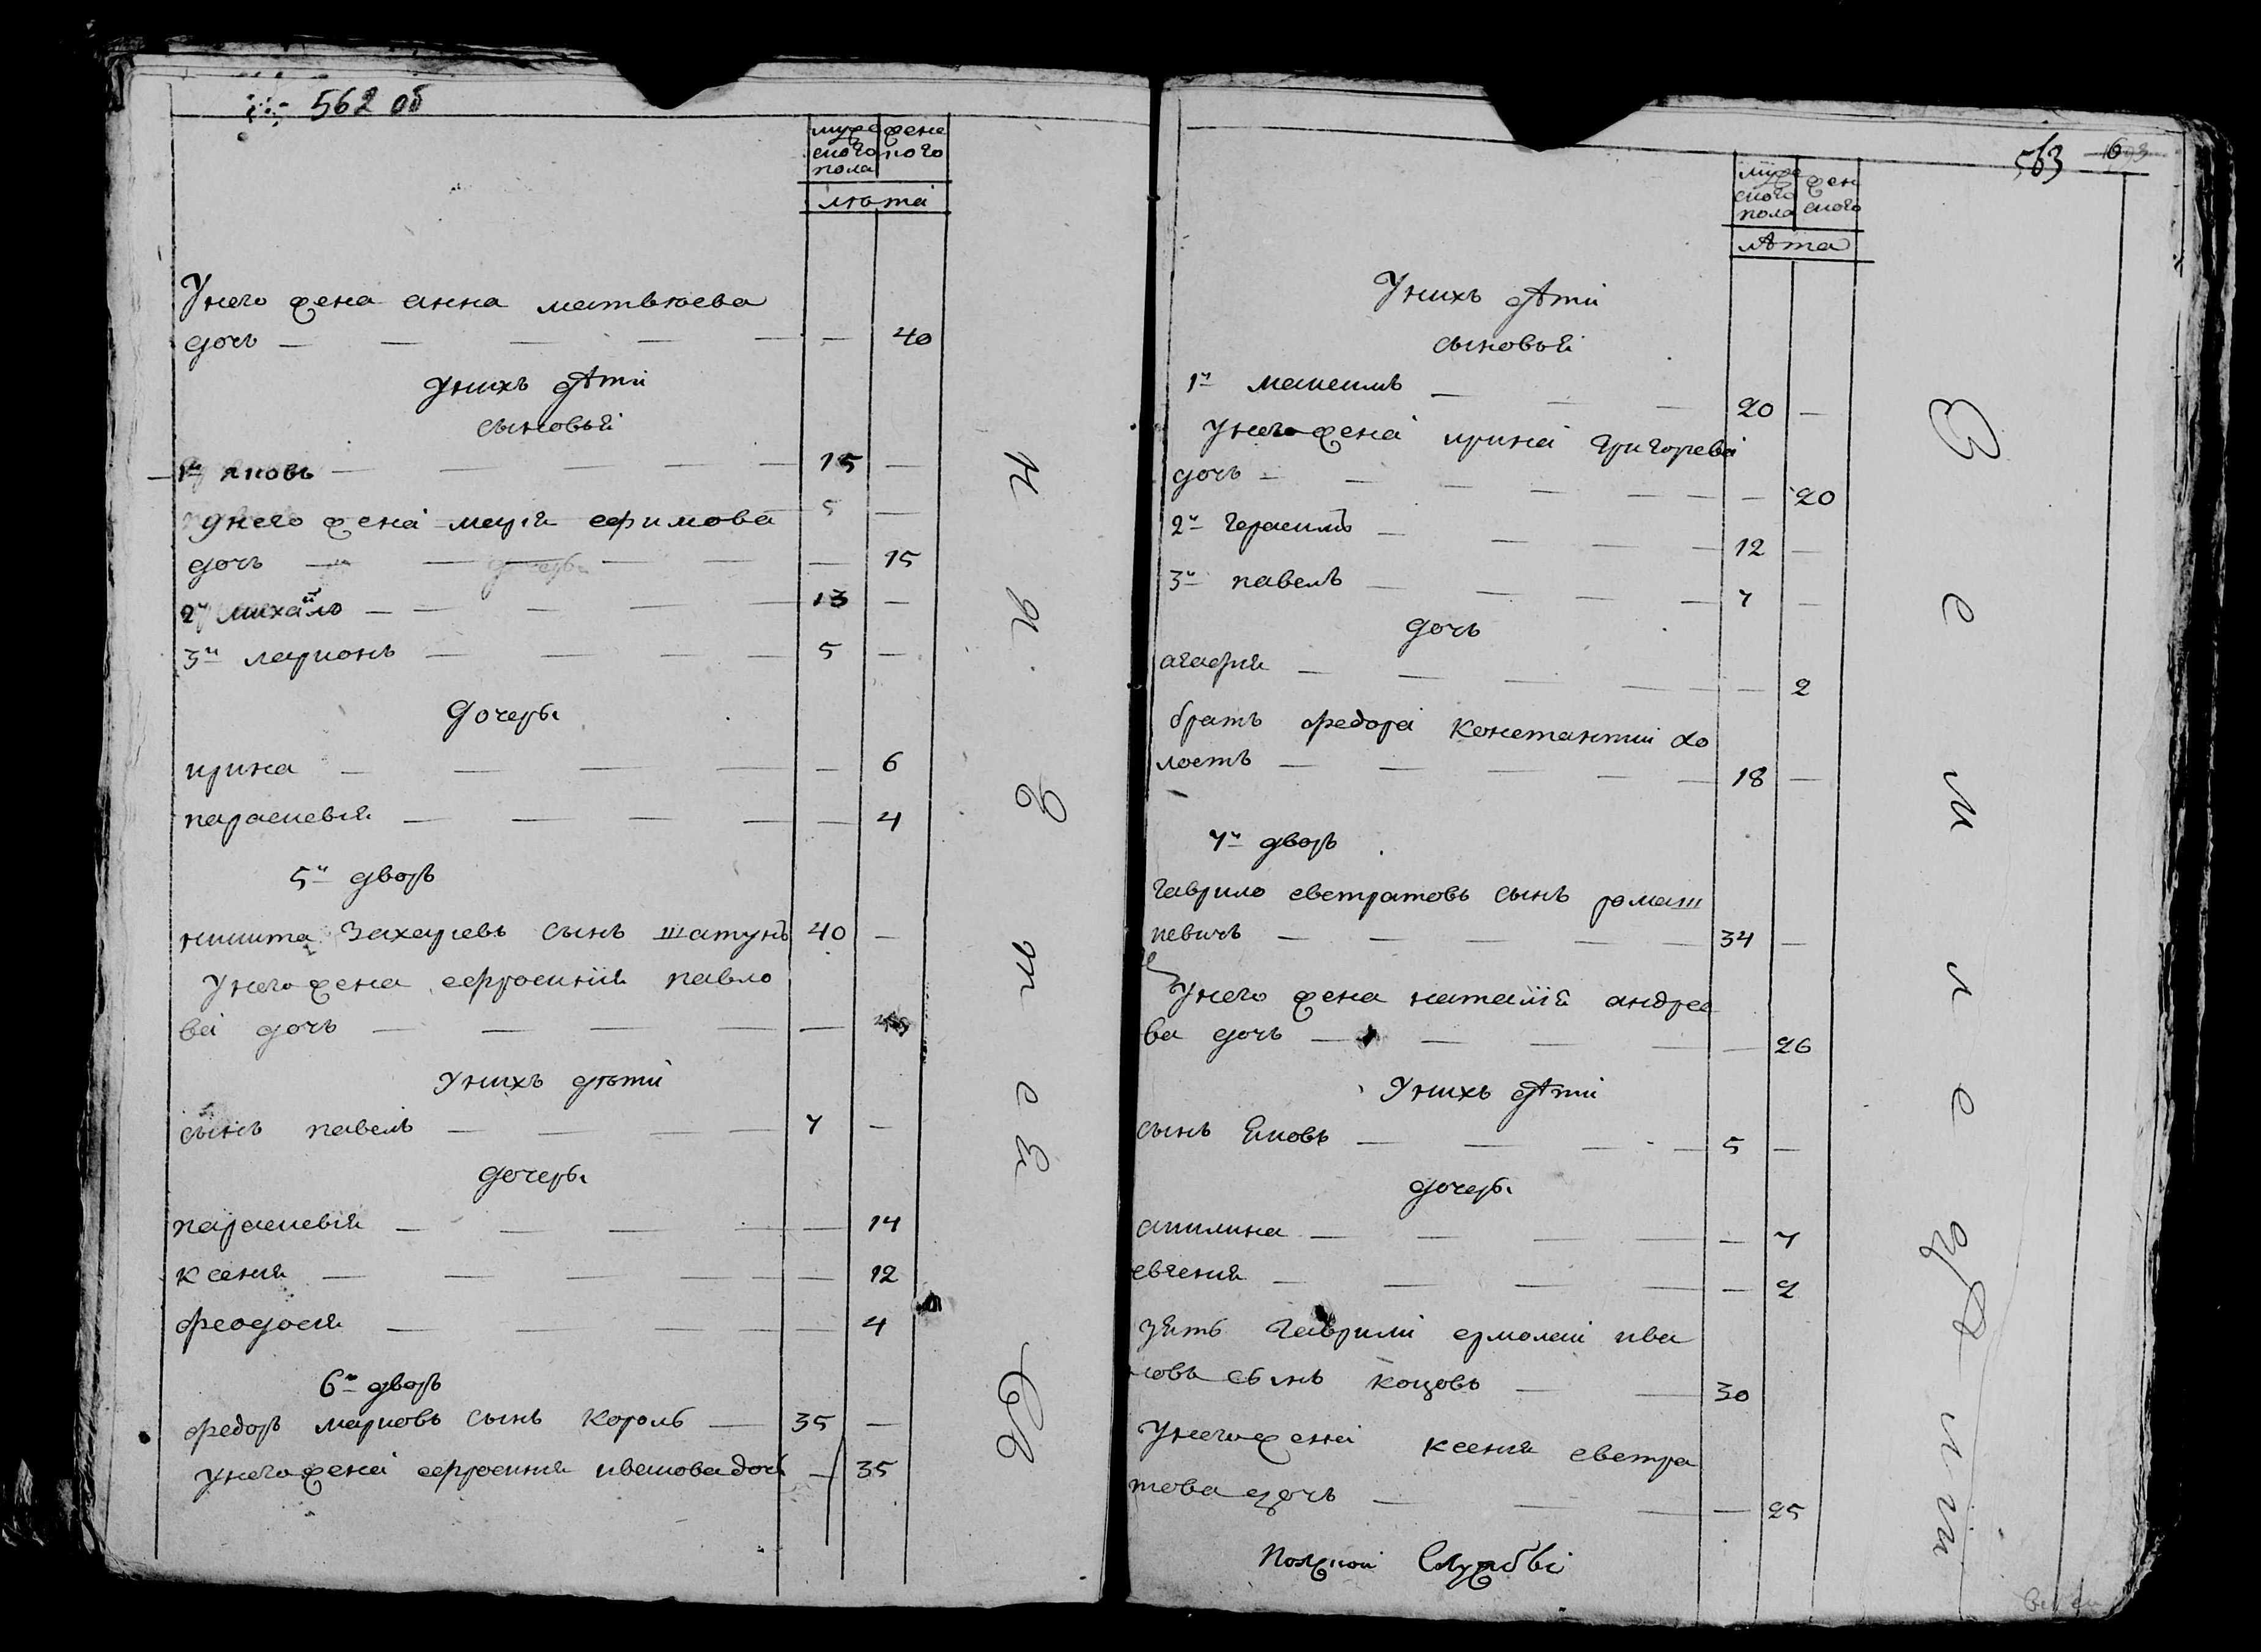 562 об
муже жене
ского кого
пола
лѣта
Унего жена анна матвѣева
дочь — — — — — — 40
Унихъ дѣти
сыновья
1й яковъ — — — — — 15 —
Унего жена марія ефимова
дочь — — — — — — 15
2й михайло — — — — 13 —
3й ларионъ — — — — 5 —
дочеры
ирина — — — — — 6
параскевія — — — — — 4
5й дворъ
никита Захарьевъ сынъ шатунъ 40 —
Унего жена ефросинія павло
ва дочь — — — —
Унихъ дѣти
сынъ павелъ — — — — 7 —
дочеры
параскевія — — — — — 14
ксения — — — — — — 12
феодосия — — — — — 4
6й дворъ
федоръ марковъ сынъ король — 35 —
Унего жена ефросиния ивановадочь — 35
563
муже жен
ского ского
пола
лѣта
Унихъ дѣти
сыновья
1й максимъ — — — 20 —
Унего жена ирина григорева
дочь — — — — — — — 20
2й герасимъ — — — — 12 —
3й павелъ — — — — 7 —
дочь
агафия — — — — — — 2
братъ федора Константии хо
лостъ — — — — — 18 —
7й дворъ
гаврило евстратовъ сынъ ромаш
кевичъ — — — — — 34 —
Унего жена наталія андрее
ва дочь — — — — — 26
Унихъ дѣти
сынъ Яковъ — — — — 5 —
дочеры
акилина — — — — — 7
евгения — — — — — 2
зять Гаврили ермолаи ива
новъ сынъ коцовъ — — 30
Унего жена ксения евстра
това дочь — — — — 25
Полской Службы